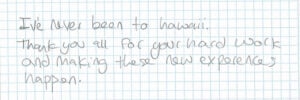 I've never been to hawaii.
Thank you all for your hard work
and making these new experences
happen.